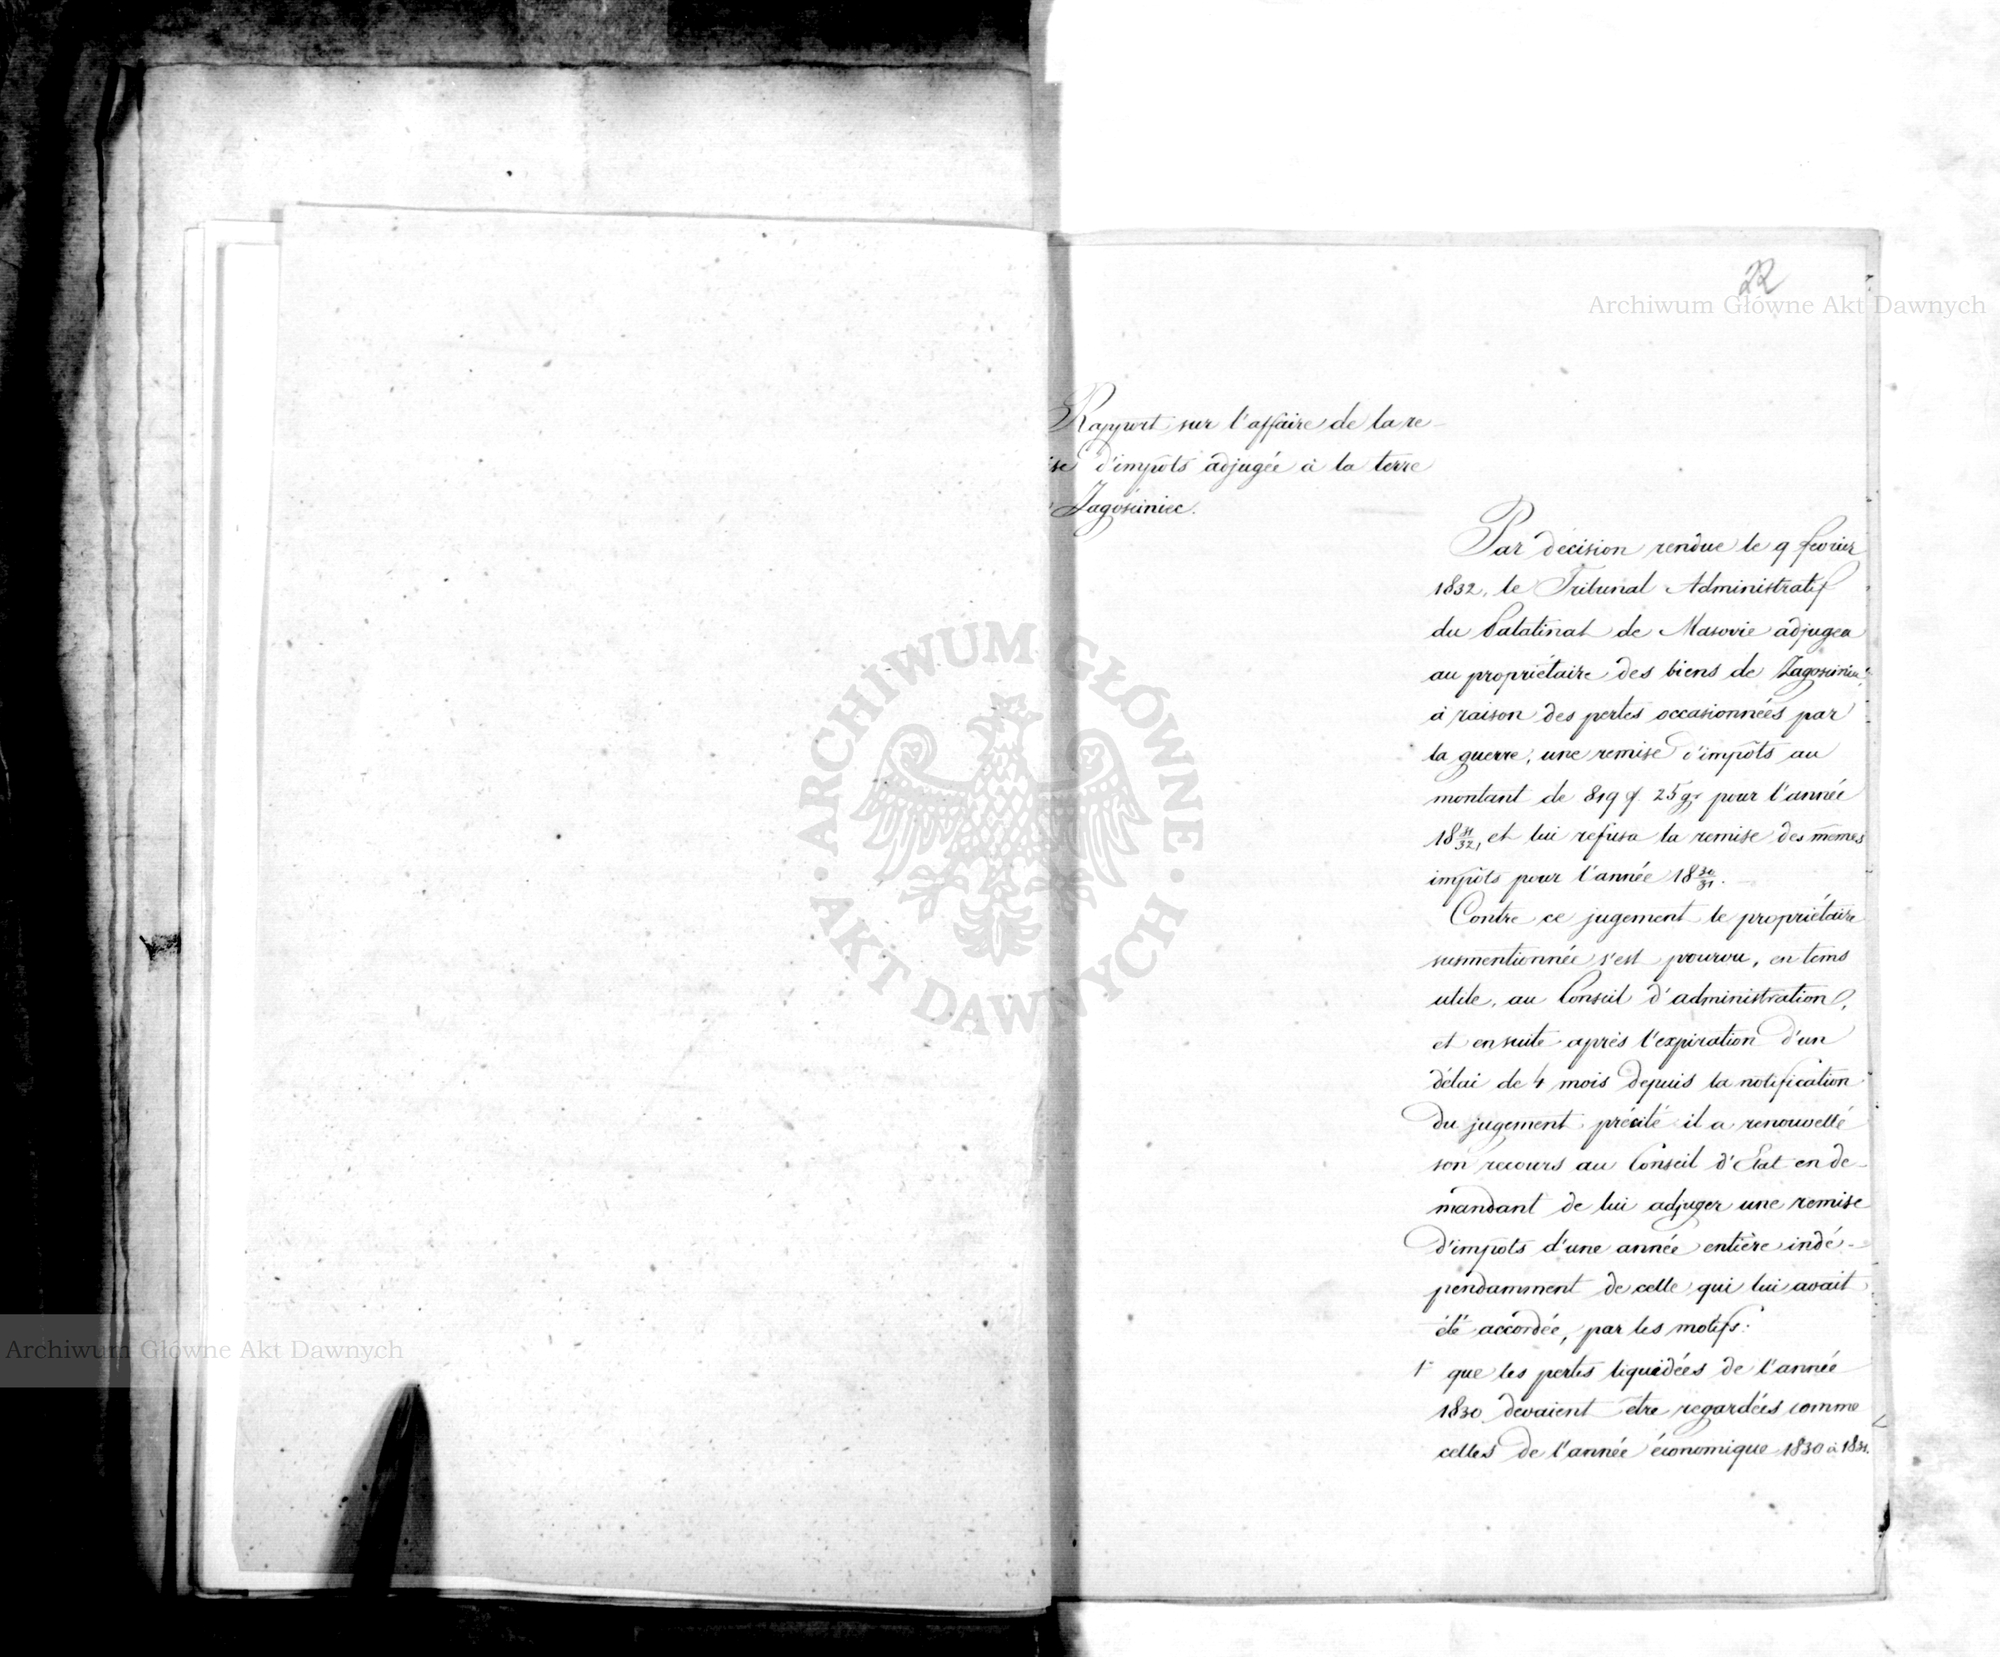 22
Archiwum Główne Akt Dawnych
Rapport sur l'affaire de la re-
ise d'impôts adjugée à la terre
Zagościniec.
Par décision rendue le 9 fevrier
1832, le Tribunal Administratif
du Palatinat de Masovie adjugea
au propriétaire des biens de Zagościniec
à raison des pertes occasionnées par
la guerre, une remise d'impôts au
montant de 819 f. 25 gr pour l'année
18 31/32, et lui refusa la remise des mêmes
impôts pour l'année 18 30/31.
Contre ce jugement le propriétaire
susmentionnée s'est pourvu, en tems
utile, au Conseil d'administration,
et ensuite après l'expiration d'un
délai de 4 mois depuis la notification
du jugement précité il a renouvellé
son recours au Conseil d'Etat en de-
mandant de lui adjuger une remise
d'impots d'une année entière indé-
pendamment de celle qui lui avait
été accordée, par les motifs:
1° que les pertes liquidées de l'année
1830 devaient être regardées comme
celles de l'année économique 1830 à 1831.
ARCHIWUM GŁÓWNE
AKT DAWNYCH
Archiwum Główne Akt Dawnych